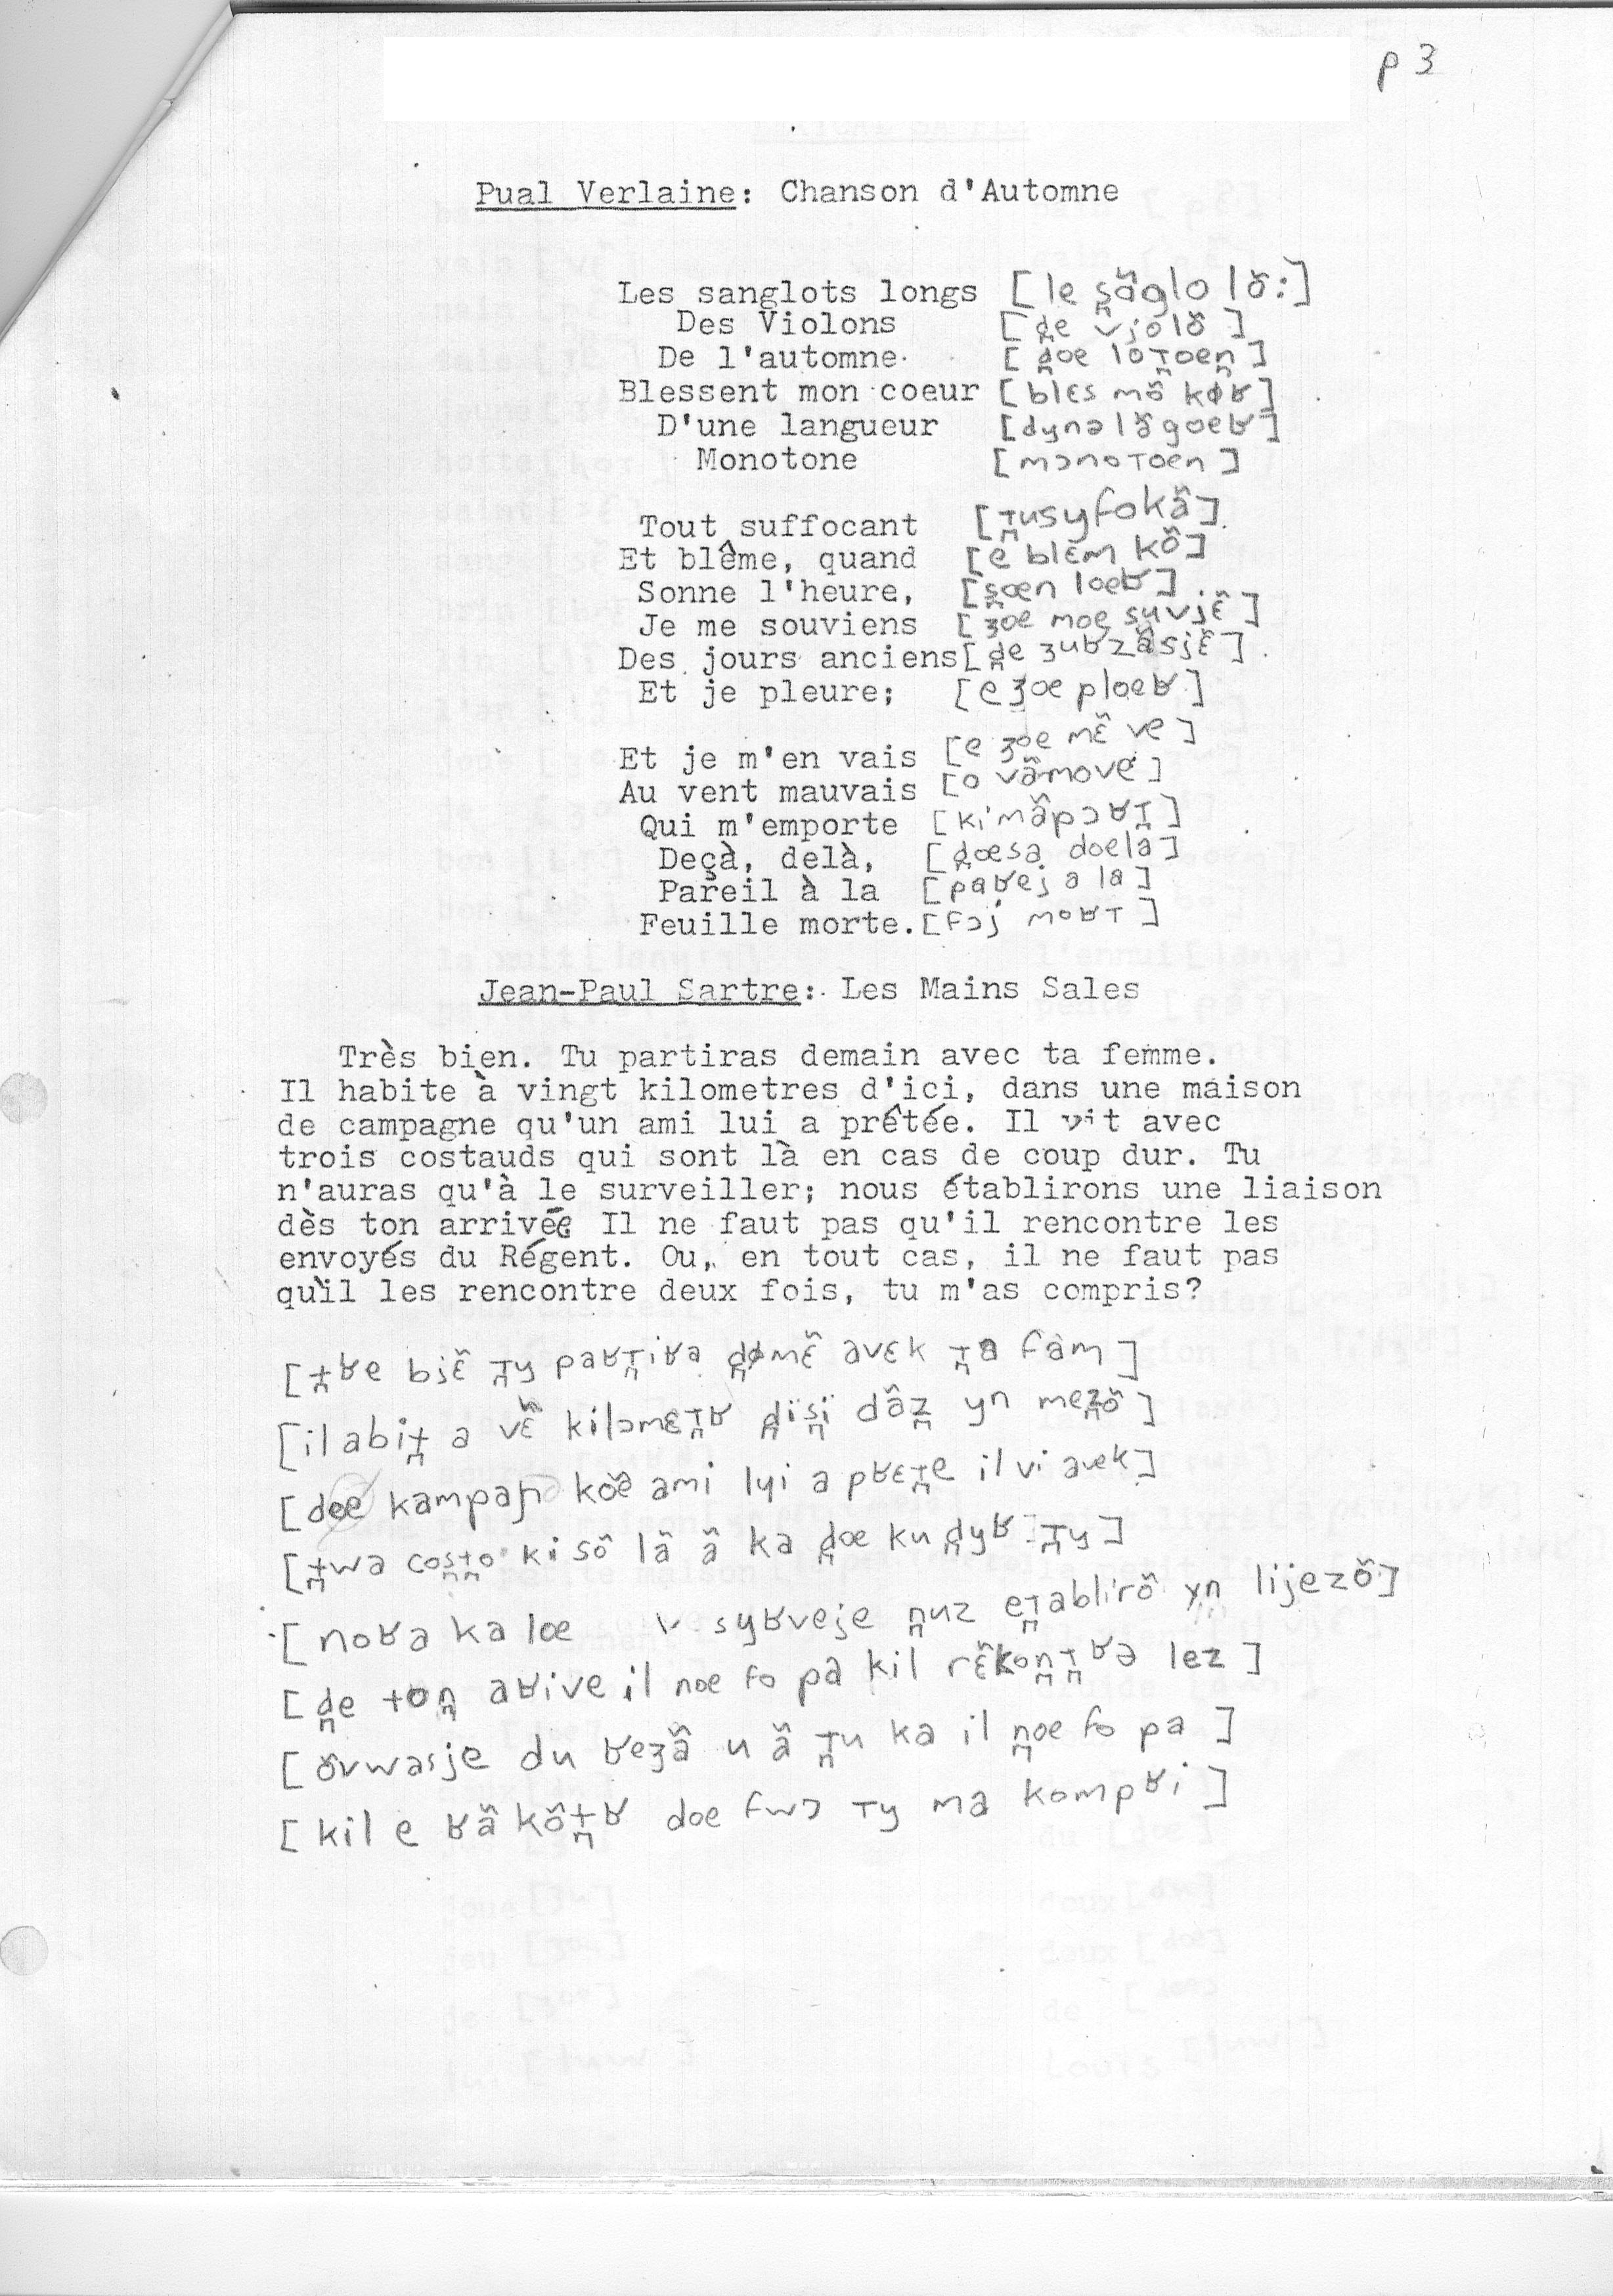 p 3
Pual Verlaine: Chanson d'Automne
Les sanglots longs [le s̪ɑ̃glo lɔ̃:]
Des Violons [d̪e vjolɔ̃]
De l'automne [d̪œ lot̪œn̪]
Blessent mon coeur [blɛs mɔ̃ køʁ]
D'une langueur [dynə lɔ̃gœʁ]
Monotone [mɔnotœn]
Tout suffocant [t̪usyfokã]
Et blême, quand [e blɛm kɔ̃]
Sonne l'heure, [s̪œn lœʁ]
Je me souviens [ʒœ mœ suvjɛ̃]
Des jours anciens [d̪e ʒuʁzãsjɛ̃]
Et je pleure; [e ʒœ plœʁ]
Et je m'en vais [e ʒœ mɛ̃ ve]
Au vent mauvais [o vãmove]
Qui m'emporte [kimãpɔʁt̪]
Deçà, delà, [d̪œsa dœla]
Pareil à la [paʁej a la]
Feuille morte. [fɔj moʁt]
Jean-Paul Sartre: Les Mains Sales
Très bien. Tu partiras demain avec ta femme.
Il habite à vingt kilometres d'ici, dans une maison
de campagne qu'un ami lui a prêtée. Il vit avec
trois costauds qui sont là en cas de coup dur. Tu
n'auras qu'à le surveiller; nous établirons une liaison
dès ton arrivée Il ne faut pas qu'il rencontre les
envoyés du Régent. Ou, en tout cas, il ne faut pas
qu'il les rencontre deux fois, tu m'as compris?
[t̪ʁe bjɛ̃ t̪y paʁt̪iʁa d̪ømɛ̃ avɛk t̪a fam]
[il abit̪ a vɛ̃ kilɔmɛt̪ʁ d̪ïs̪ï dãz̪ yn mez̪ɔ̃]
[dœ kampaɲ kœ̃ ami lyi a pʁɛt̪e il vi avek]
[t̪wa cos̪t̪o ki sɔ̃ lã ã ka d̪œ ku d̪yʁ t̪y]
[noʁa ka lœ syʁveje n̪uz et̪ablirɔ̃ yn lijezɔ̃]
[d̪e ton̪ aʁive il nœ fo pa kil rɛ̃kon̪t̪ʁə lez]
[ɔ̃vwasje du ʁeʒã u ã t̪u ka il n̪œ fo pa]
[kil e ʁã kɔ̃t̪ʁ dœ fwɔ ty ma kompʁi]